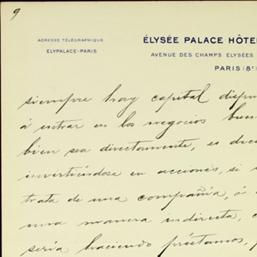 9
ADRESSE TÉLÉGRAPHIQUE
ELYPALACE-PARIS
ÉLYSÉE PALACE HÔTE
AVENUE DES CHAMPS ELYSÉES
PARIS (8E
siempre hay capital dispu
á entrar en los negocios bue
bien sea directamente, es dec
invirtiéndose en acciones, si s
trata de una compañía, ó d
una manera indirecta, o
sería haciendo préstamos, p